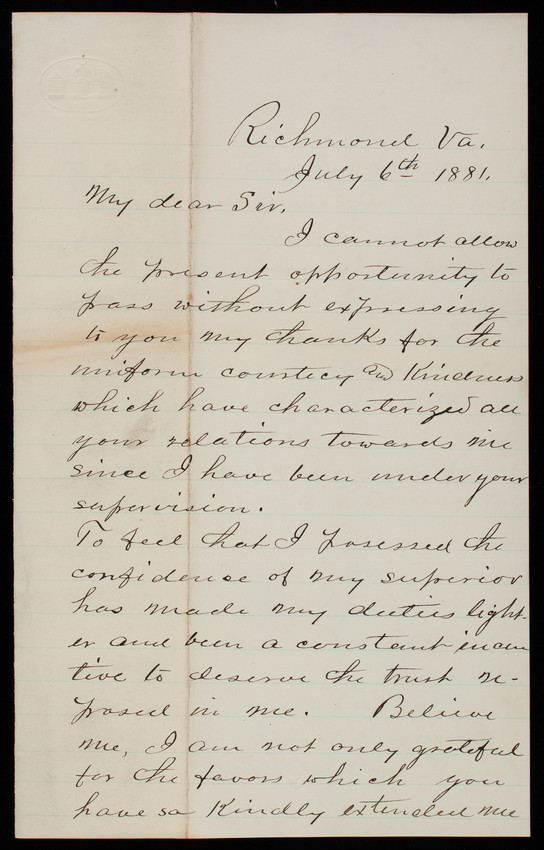 Richmond Va.
July 6th 1881.
My dear Sir,
I cannot allow
the present opportunity to
pass without expressing
to you my thanks for the
uniform courtecy and Kindness
which have characterized all
your relations towards me
since I have been under your
supervision.
To feel that I posessed the
confidence of my superior
has made my duties light-
er and been a constant incen
tive to deserve the trust re-
posed in me. Believe
me, I am not only grateful
for the favors which you
have so Kindly extended me